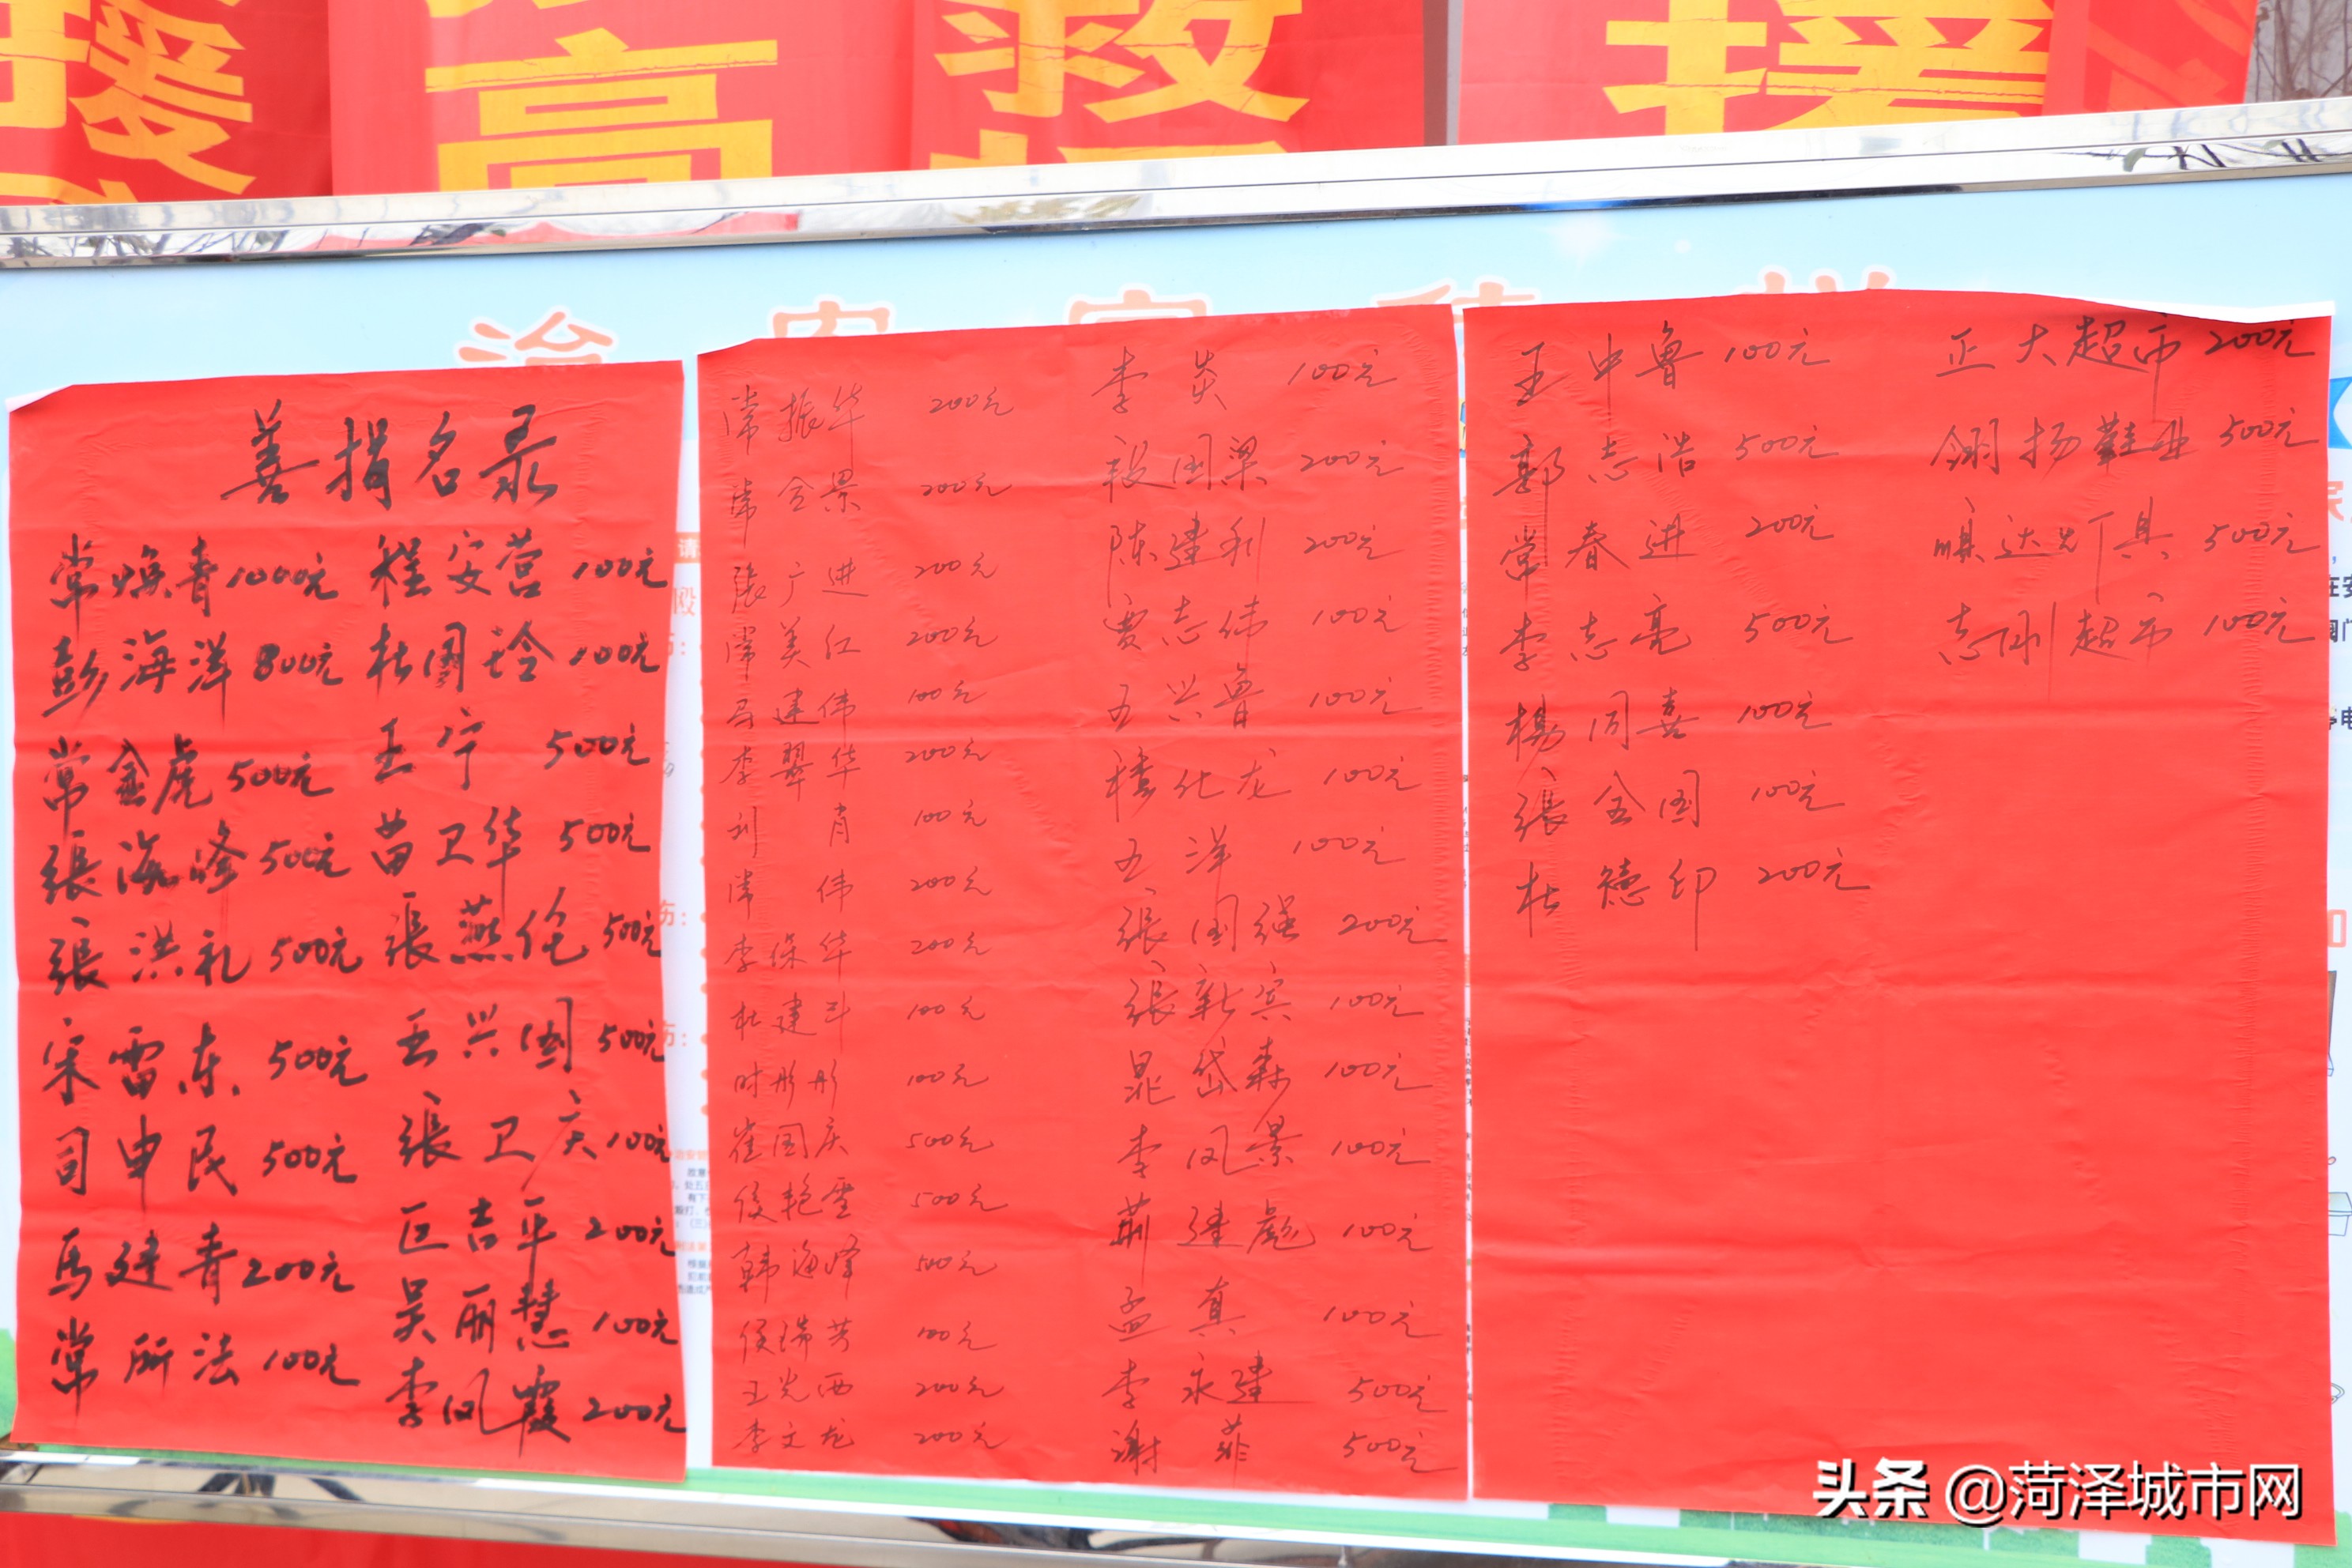 援
高
救
援
治安宣传栏
善捐名录
常焕青 1000元
彭海洋 800元
常金虎 500元
張海峰 500元
張洪礼 500元
宋雷东 500元
司申民 500元
马建青 200元
常所法 100元
程安营 100元
杜国玲 100元
王宁 500元
苗卫华 500元
張燕伦 500元
王兴国 500元
張卫庆 100元
巨吉平 200元
吴丽慧 100元
李凤霞 200元
常振华 200元
常合景 200元
張广进 200元
常美红 200元
马建伟 100元
李翠华 200元
刘肖 100元
常伟 200元
李保华 200元
杜建斗 100元
时彤彤 100元
崔国庆 500元
侯艳雪 500元
韩海峰 500元
侯瑞芳 100元
王光西 200元
李文龙 200元
李炎 100元
段国梁 200元
陈建利 200元
贾志伟 100元
王兴鲁 100元
化龙 100元
王洋 100元
張国强 200元
張新宾 100元
晁岱森 100元
李凤景 100元
荆建彪 100元
孟真 100元
李永建 500元
谢菲 500元
王中鲁 100元
郭志浩 500元
常春进 200元
李志亮 500元
杨同喜 100元
張全国 100元
杜德印 200元
正大超市 200元
翎扬鞋业 500元
顺达灯具 500元
志刚超市 100元
头条 @菏泽城市网